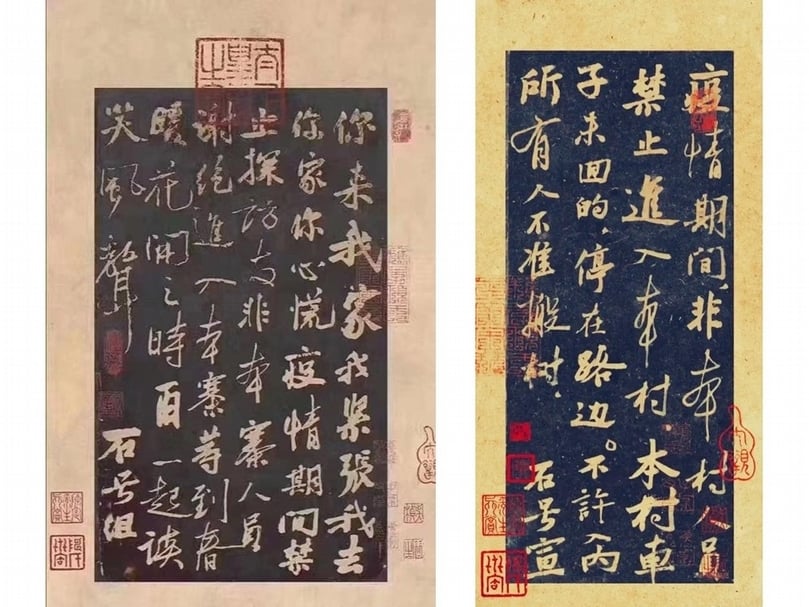 你来我家我紧张我去
你家你心慌疫情期间禁
止探访友非本寨人员
谢绝進入本寨等到春
暖花開之時百一起谈
笑風聲 石号组
疫情期间,非本村人员
禁止進入本村.本村車
子未回的,停在路边。不許入内
所有人不准搬树. 石号宣